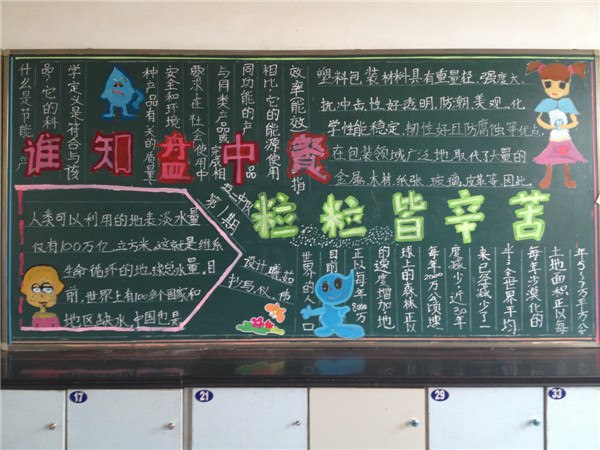 什么是节能产
品，它的科
学定义是符合与该
种产品有关的质量、
安全和环境
要求在社会使用中
与同类产品或完成相
同功能的产品
相比，它的能源使用
效率能效指
塑料包装材料具有重量轻、强度大、
抗冲击性好透明、防朝、美观、化
学性能稳定、韧性好且防腐蚀等优点
在包装领域广泛地取代了大量的
金属、木材、纸张、玻璃、皮革等，因此
谁知盘中餐
粒粒皆辛苦
第1期
人类可以利用的地表淡水量
仅有100万亿立方米，这就是维系
生命循环的地球总水量，目
前，世界上有100多个国家和
地区缺水，中国也是
年5~7万平方公
土地面积正以每
每年沙漠化的
半，全世界平均
来已经减少了一
度减少，近30年
每年2000万公顷速
球上的森林正以
的速度增加，地
正以每年8000万
目前
世界的人口
17
21
29
33